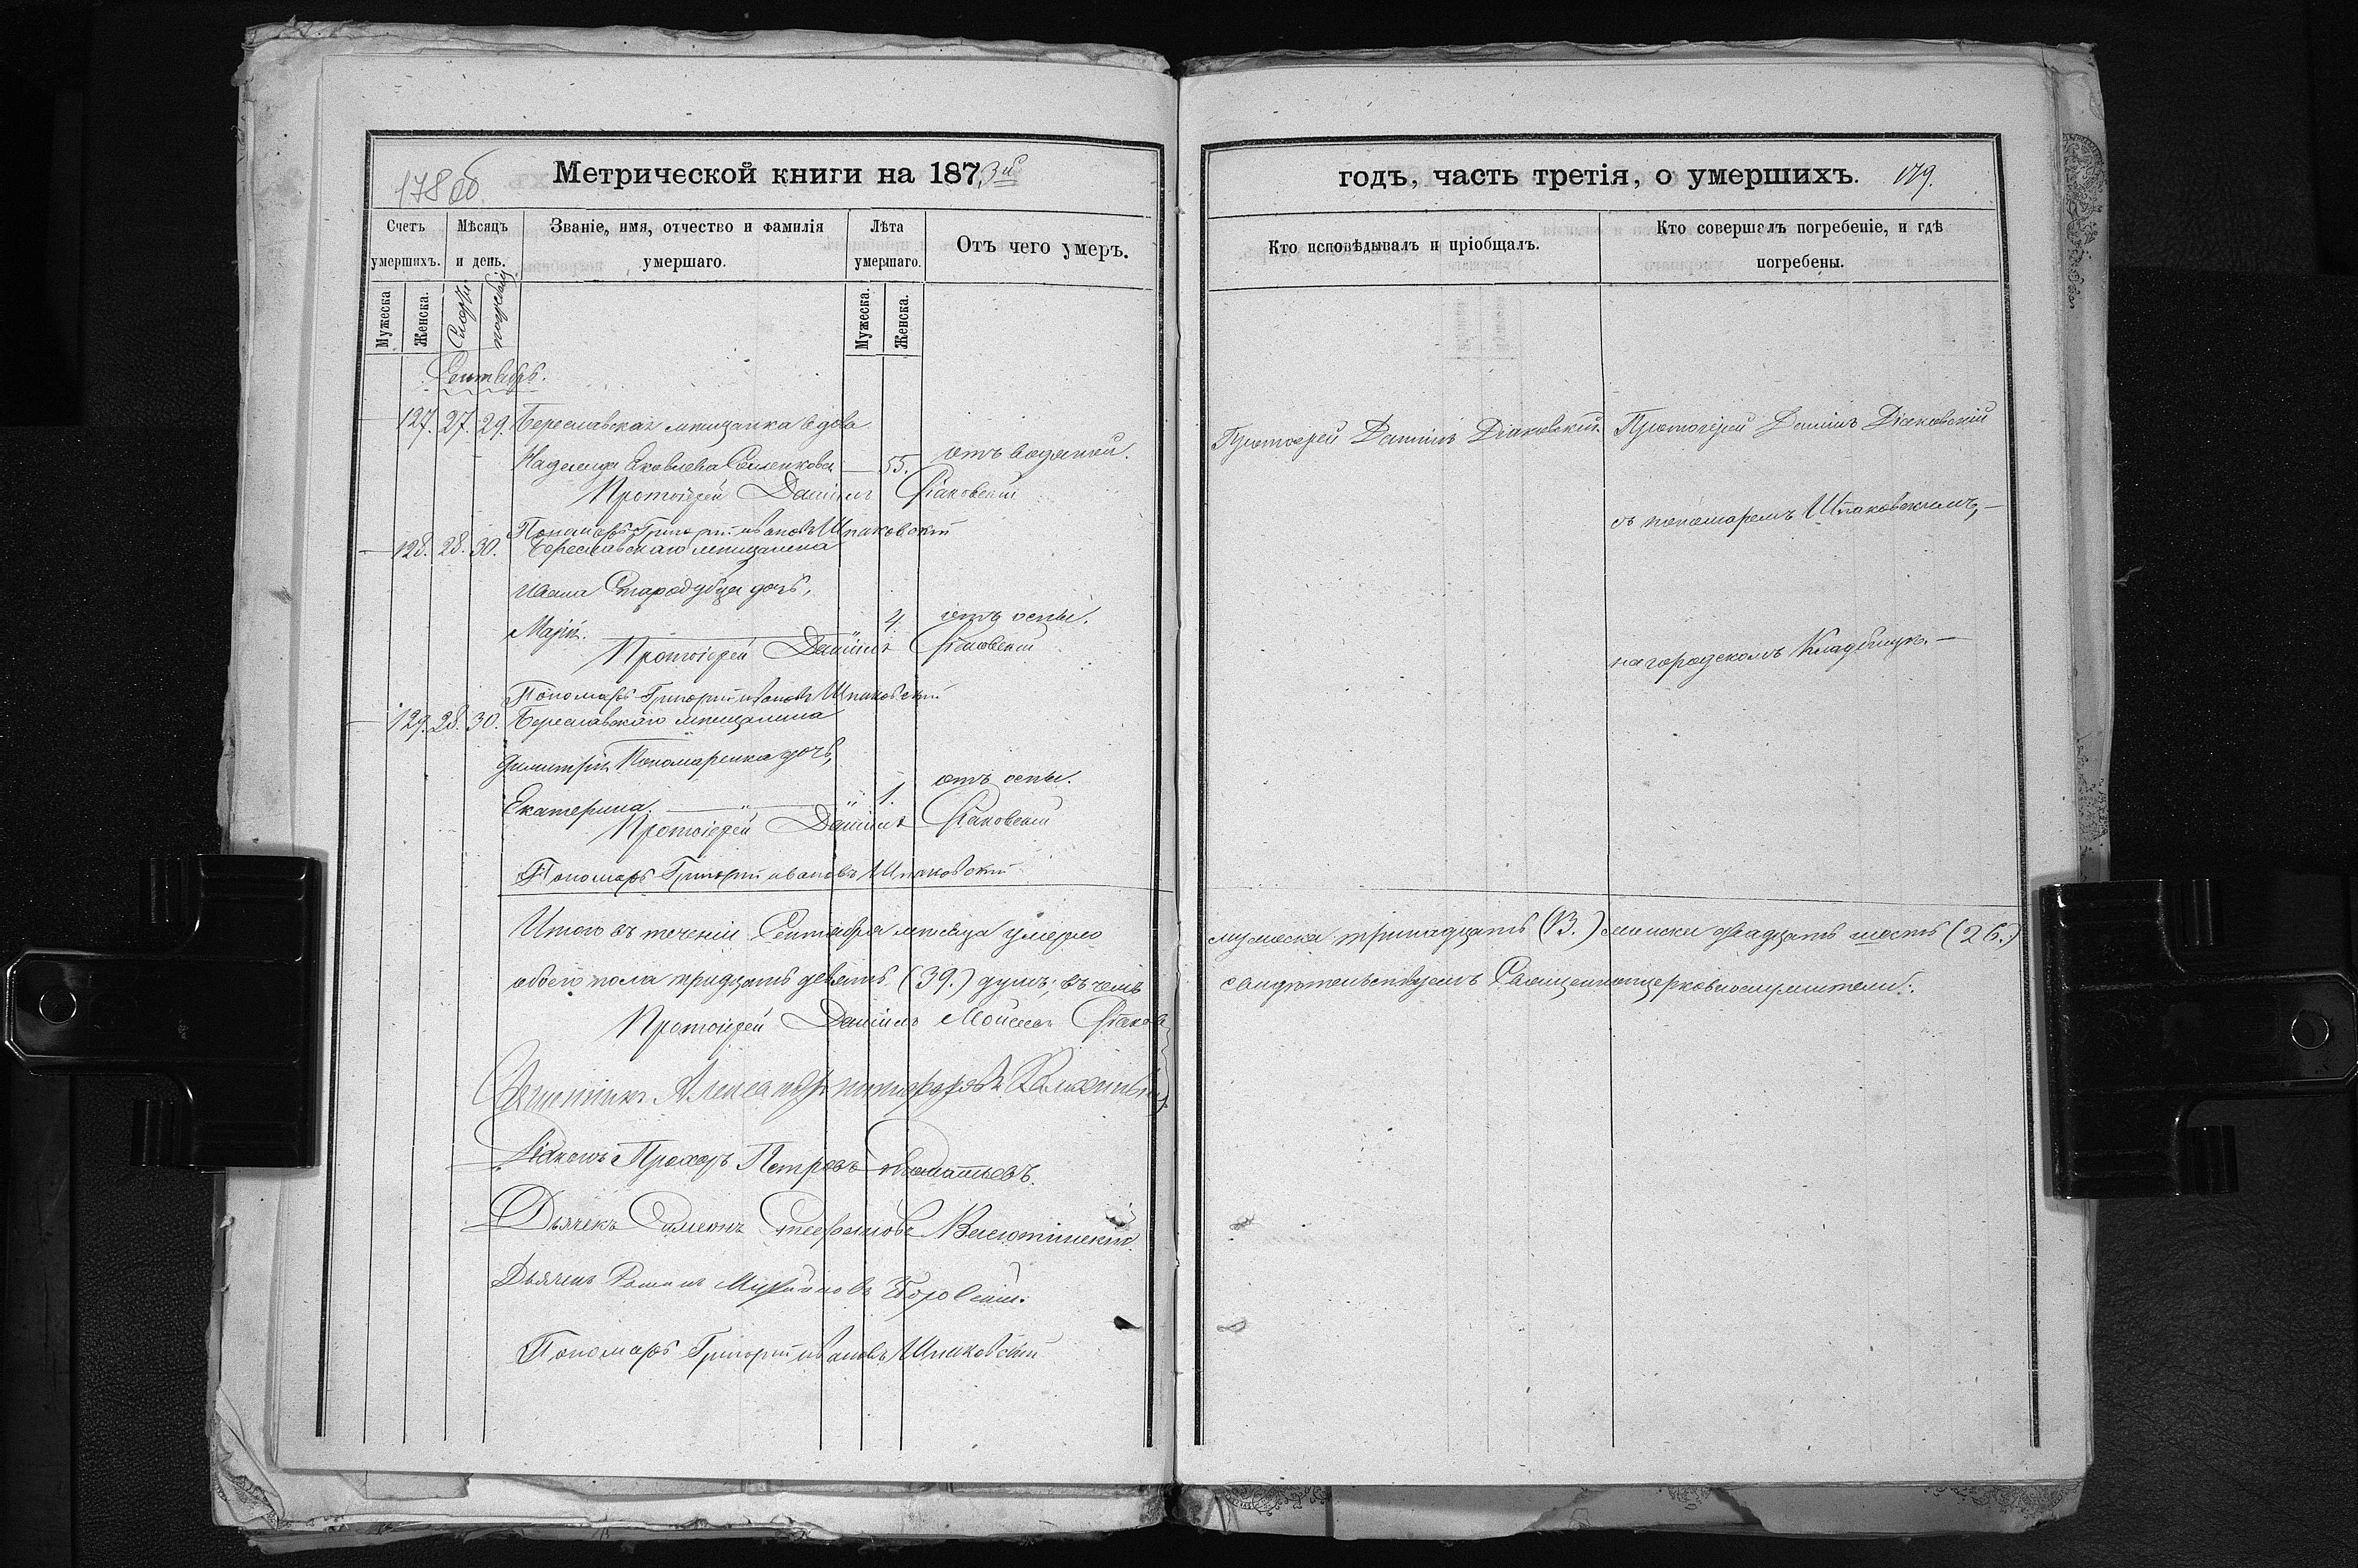 178 об.
Метрической книги на 1873й
Счетъ умершихъ.
Мѣсяцъ и день.
Званіе, имя, отчество и фамилія умершаго.
Лѣта умершаго.
Отъ чего умеръ.
Мужеска
Женска.
Смерти
погребенія
Мужеска.
Женска.
Сентябрь.
127. 27. 29. Береславская мѣщанка вдова
Надежда Яковлева 55. отъ водяной.
Протоіерей Даніилъ Діаковскій
Пономарь Григорій Ивановъ Шпаковскій
128. 28. 30. Береславскаго мѣщанина
Ивана Стародубца дочь,
Марія. 4. отъ оспы.
Протоіерей Даніилъ Діаковскій
Пономарь Григорій Ивановъ Шпаковскій
129. 28. 30. Береславскаго мѣщанина
Димитрія Пономаренка дочь,
Екатерина. 1. отъ оспы.
Протоіерей Даніилъ Діаковскій
Пономарь Григорій Ивановъ Шпаковскій
Итого въ теченіи Сентября мѣсяца умерло
обоего пола тридцать девять (39.) душъ; въ чемъ
Протоіерей Даніилъ Моисеевъ
Священникъ Александръ
Діаконъ Прохоръ Петровъ
Дьячекъ Симеонъ Стефановъ
Дьячекъ Боровскій.
Пономарь Григорій Ивановъ Шпаковскій
годъ, часть третія, о умершихъ. 179.
Кто исповѣдывалъ и пріобщалъ.
Кто совершалъ погребеніе, и гдѣ погребены.
Протоіерей Даніилъ Діаковскій. Протоіерей Даніилъ Діаковскій
съ пономаремъ Шпаковскимъ,
на городскомъ Кладбищѣ.
мужеска тринадцать (13.) женска двадцать шесть (26.)
свидѣтельствуемъ Священноцерковнослужители: